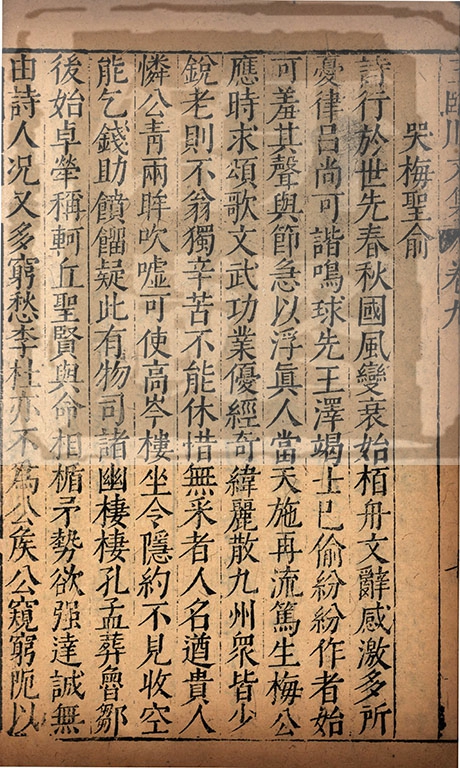 王臨川文集 卷九
哭梅聖俞
詩行於世先春秋國風變衰始栢舟文辭感激多所
憂律呂尚可諧鳴球先王澤竭士已偷紛紛作者始
可羞其聲與節急以浮眞人當天施再流篤生梅公
應時求頌歌文武功業優經竒緯麗散九州衆皆少
銳老則不翁獨辛苦不能休惜無采者人名遒貴人
憐公青兩眸吹噓可使高岑樓坐令隱約不見收空
能乞錢助饋餾疑此有物司諸幽棲棲孔孟葬魯鄒
後始卓犖稱軻丘聖賢與命相楯矛勢欲强達誠無
由詩人况又多窮愁李杜亦不爲公矦公窺窮阨以